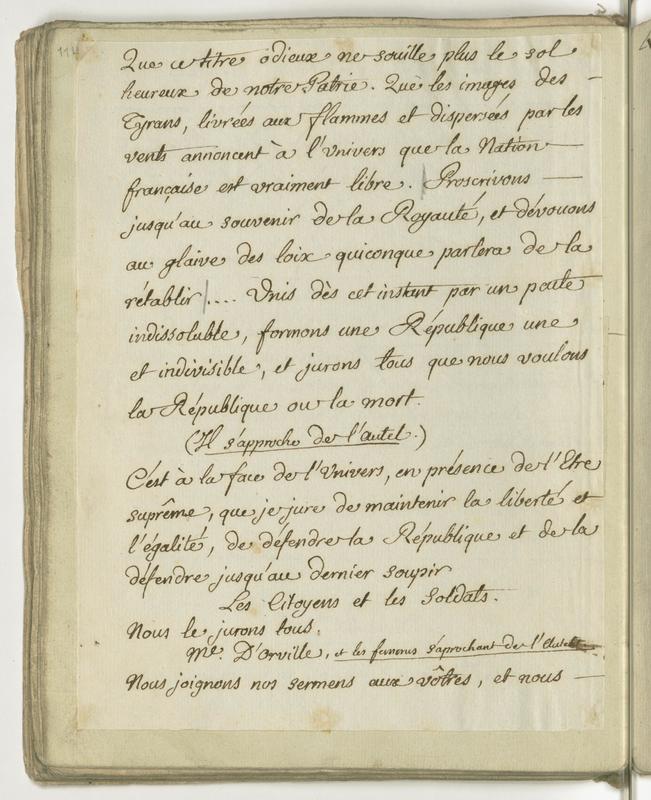 114
Que ce titre odieux ne souille plus le sol
heureux de notre Patrie. Que les images des —
Tyrans, livrées aux flammes et dispersées par les
vents annoncent à l'Univers que la Nation —
française est vraiment libre. | Proscrivons —
jusqu'au souvenir de la Royauté, et dévouons
au glaive des loix quiconque parlera de la
rétablir |.... Unis dès cet instant par un pacte
indissoluble, formons une République une
et indivisible, et jurons tous que nous voulons
la République ou la mort.
(Il s'approche de l'autel.)
C'est à la face de l'Univers, en présence de l'Etre
suprême, que je jure de maintenir la liberté et
l'égalité, de défendre la République et de la
défendre jusqu'au dernier soupir
Les Citoyens et les Soldats.
Nous le jurons tous.
Me. D'Orville, et les femmes s'aprochant de l'Autel
Nous joignons nos sermens aux vôtres, et nous —